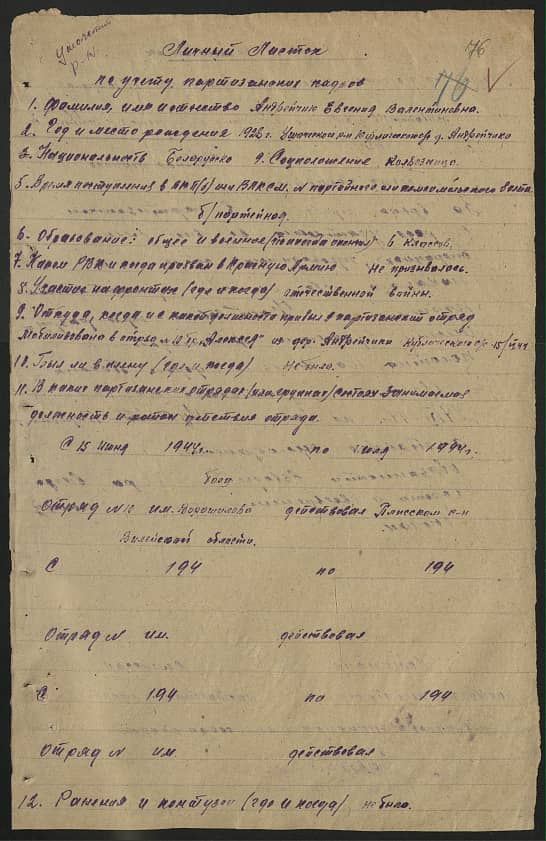 Ушачский
р-н
76
Личный Листок
по учету партизанских кадров
1. Фамилия, имя и отчество Андрейчик Евгения Валентиновна.
2. Год и место рождения 1926 г. Ушачский р-н д. Андрейчики
3. Национальность Белоруска 4. Соцположение Колхозница.
5. Время поступления в ВКП(б) или ВЛКСМ. № партийного или комсомольского билета
б/партейная.
6. Образование: общее и военное 6 классов.
7. Каким РВК и когда призван в Красную Армию Не призывалась.
8. Участие на фронтах (где и когда) отечественной войны.
9. Откуда, когда и с какой должности прибыл в партизанский отряд
Мобилизована в отряд "Алексея" из дер. Андрейчики
10. Был ли в плену (где и когда) Не была.
11. В каких партизанских отрядах занимаемая
должность и действия отряда.
С 15 июня 1944 г. по июля 1944 г.
боец
Отряд № 12 им. Ворошилова действовал Плисском р-н
Вилейской области.
С 194 по 194
Отряд № им. действовал
С 194 по 194
Отряд № им. действовал
12. Ранения и контузии (где и когда) не было.